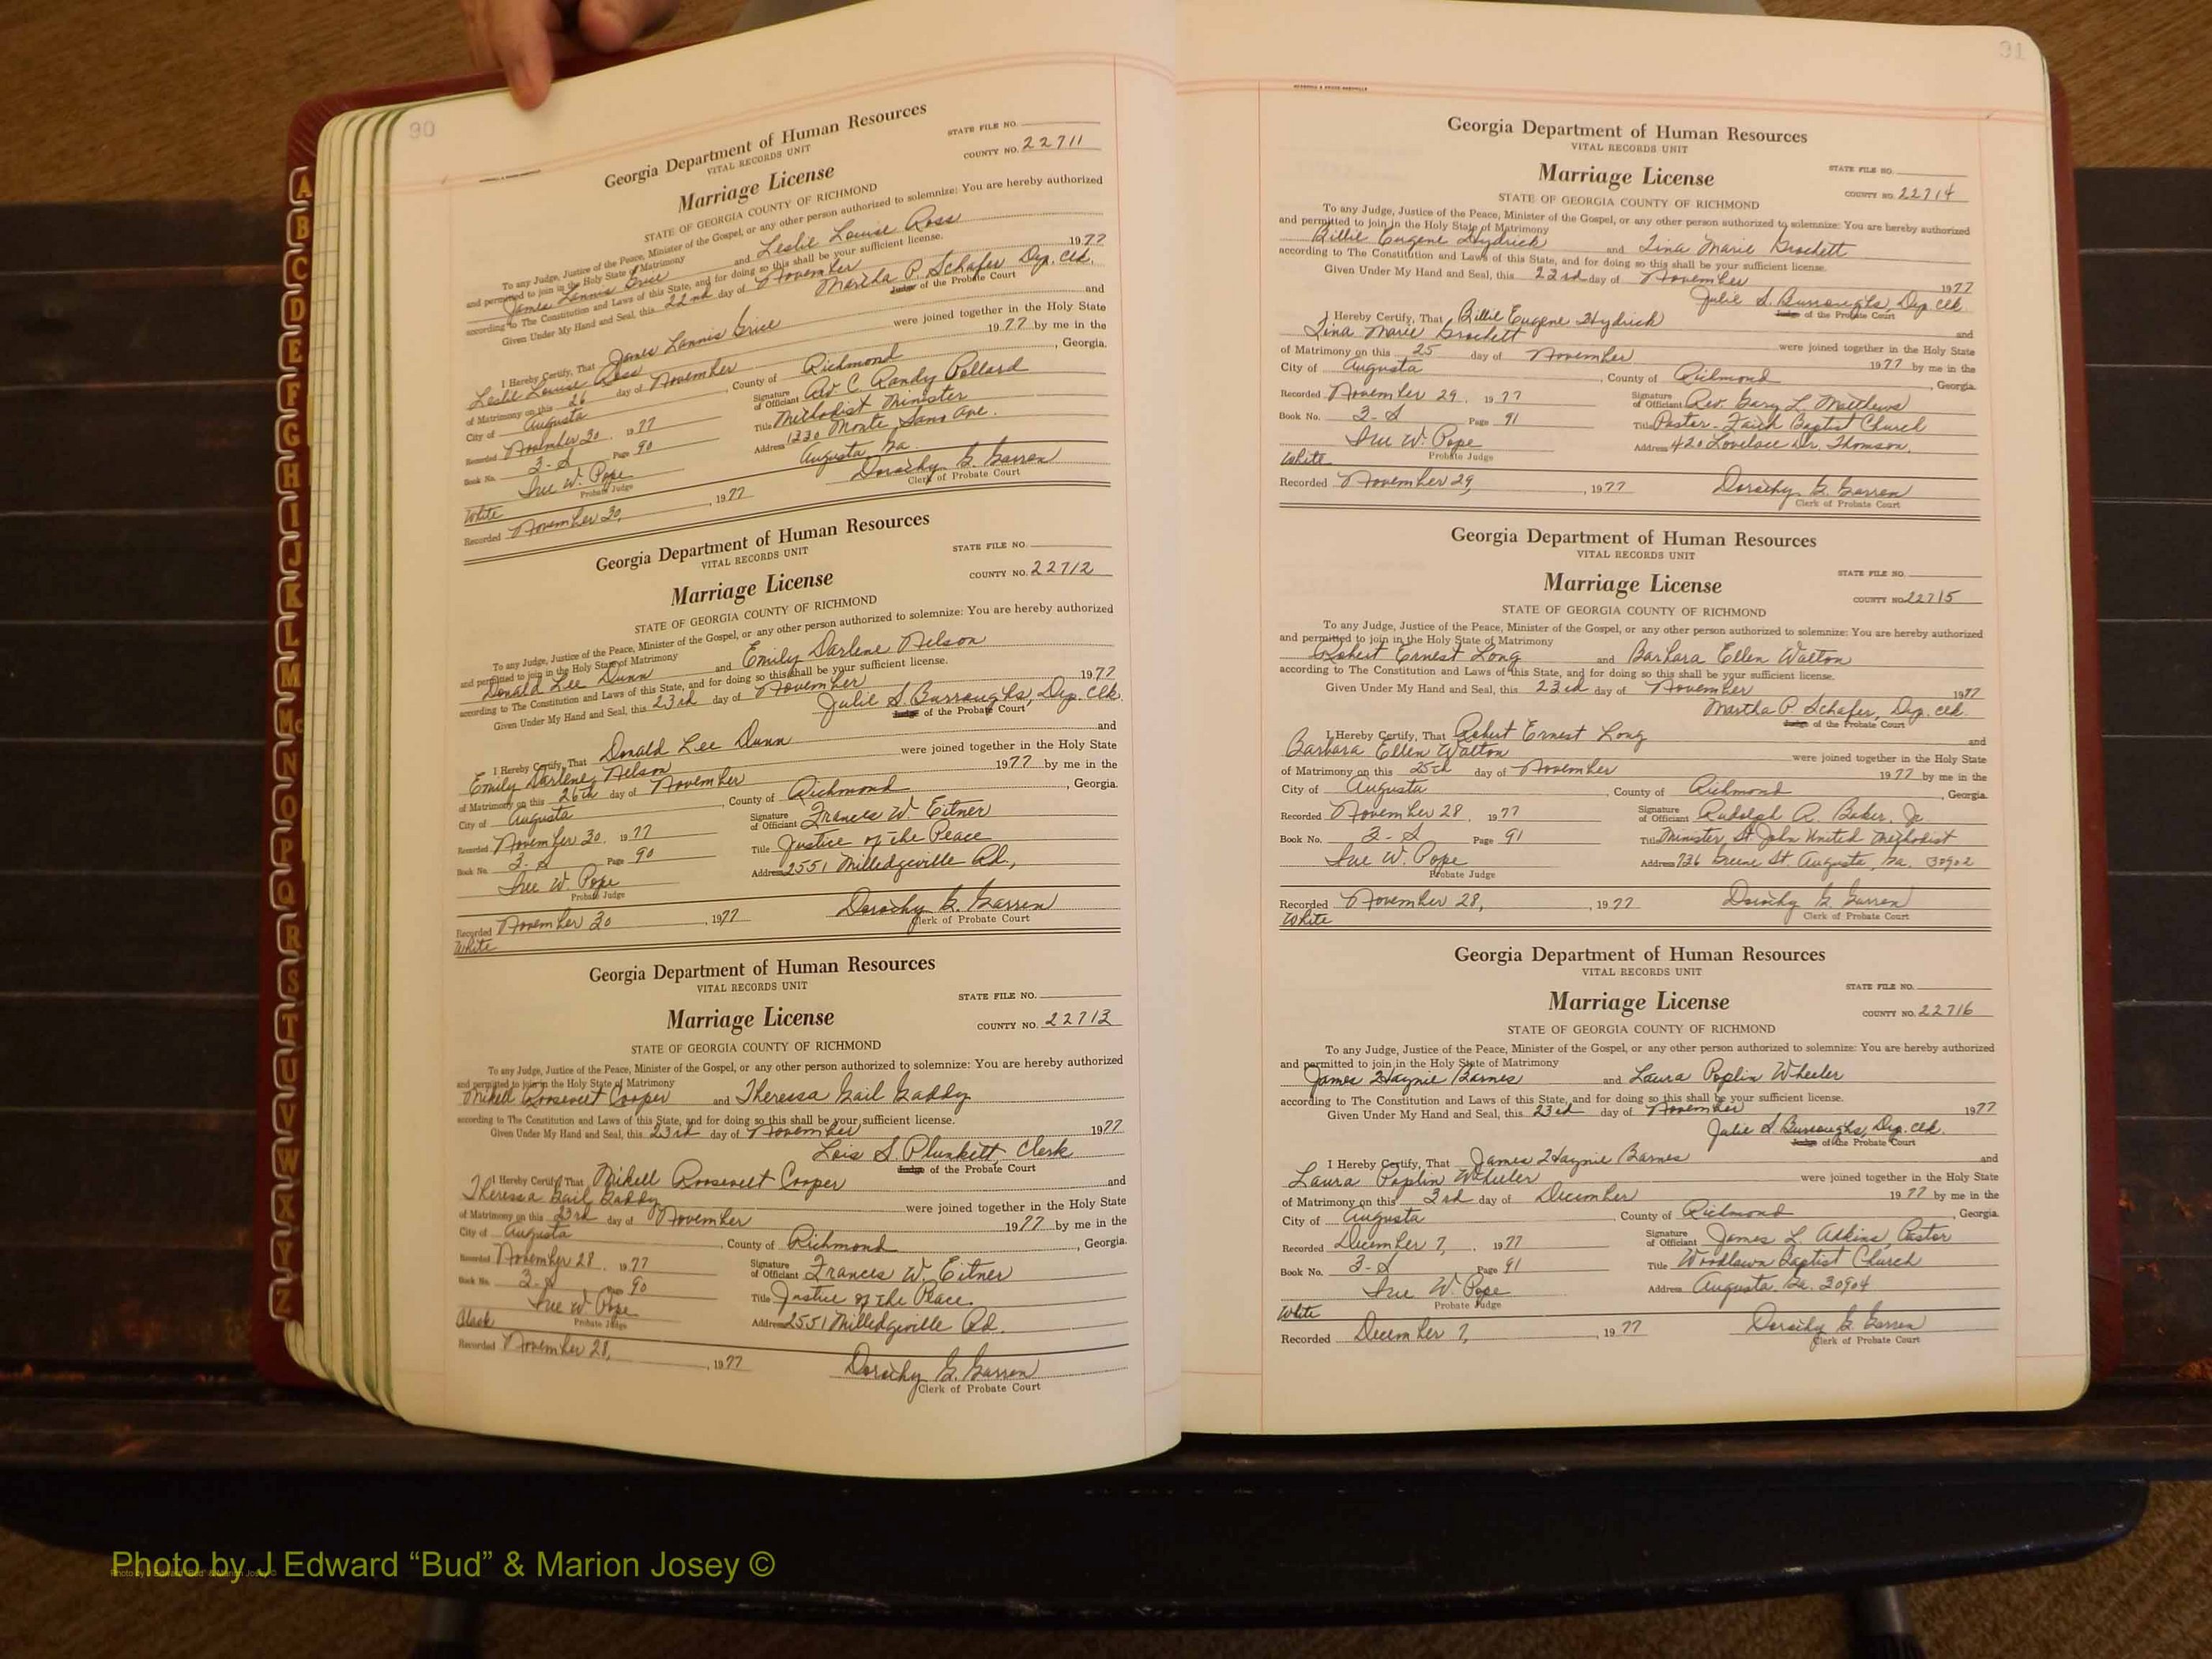 90
Georgia Department of Human Resources
VITAL RECORDS UNIT
STATE FILE NO.
Marriage License
COUNTY NO. 22711
STATE OF GEORGIA COUNTY OF RICHMOND
To any Judge, Justice of the Peace, Minister of the Gospel, or any other person authorized to solemnize: You are hereby authorized
and permitted to join in the Holy State of Matrimony
James Lannis Grice and Leslie Louise Ross
according to The Constitution and Laws of this State, and for doing so this shall be your sufficient license.
Given Under My Hand and Seal, this 22nd day of November 1977
Martha P. Schafer Dep. Clk.
Judge of the Probate Court
I Hereby Certify, That James Lannis Grice and
Leslie Louise Ross were joined together in the Holy State
of Matrimony on this 26 day of November 1977 by me in the
City of Augusta, County of Richmond, Georgia.
Recorded November 30, 1977 Signature of Officiant Rev C Randy Pollard
Book No. 3-S Page 90 Title Methodist Minister
Sue W. Pope Address 1220 Monte Sano Ave.
Probate Judge Augusta, Ga.
White
Recorded November 30, 1977 Dorothy G. Garren
Clerk of Probate Court
Georgia Department of Human Resources
VITAL RECORDS UNIT
STATE FILE NO.
Marriage License
COUNTY NO. 22712
STATE OF GEORGIA COUNTY OF RICHMOND
To any Judge, Justice of the Peace, Minister of the Gospel, or any other person authorized to solemnize: You are hereby authorized
and permitted to join in the Holy State of Matrimony
Donald Lee Dunn and Emily Darlene Nelson
according to The Constitution and Laws of this State, and for doing so this shall be your sufficient license.
Given Under My Hand and Seal, this 23rd day of November 1977
Julie S. Burroughs, Dep. Clk.
Judge of the Probate Court
I Hereby Certify, That Donald Lee Dunn and
Emily Darlene Nelson were joined together in the Holy State
of Matrimony on this 26th day of November 1977 by me in the
City of Augusta, County of Richmond, Georgia.
Recorded November 30, 1977 Signature of Officiant Frances W. Eitner
Book No. 3-S Page 90 Title Justice of the Peace
Sue W. Pope Address 2551 Milledgeville Rd.,
Probate Judge
Recorded November 30, 1977 Dorothy G. Garren
White Clerk of Probate Court
Georgia Department of Human Resources
VITAL RECORDS UNIT
STATE FILE NO.
Marriage License
COUNTY NO. 22713
STATE OF GEORGIA COUNTY OF RICHMOND
To any Judge, Justice of the Peace, Minister of the Gospel, or any other person authorized to solemnize: You are hereby authorized
and permitted to join in the Holy State of Matrimony
Mikell Roosevelt Cooper and Theressa Gail Gaddy
according to The Constitution and Laws of this State, and for doing so this shall be your sufficient license.
Given Under My Hand and Seal, this 23rd day of November 1977
Lois S. Plunkett, Clerk
Judge of the Probate Court
I Hereby Certify That Mikell Roosevelt Cooper and
Theressa Gail Gaddy were joined together in the Holy State
of Matrimony on this 23rd day of November 1977 by me in the
City of Augusta, County of Richmond, Georgia.
Recorded November 28, 1977 Signature of Officiant Frances W. Eitner
Book No. 3-S Page 90 Title Justice of the Peace.
Sue W. Pope Address 2551 Milledgeville Rd.
Black Probate Judge
Recorded November 28, 1977 Dorothy G. Garren
Clerk of Probate Court
91
Georgia Department of Human Resources
VITAL RECORDS UNIT
Marriage License
STATE FILE NO.
COUNTY NO. 22714
STATE OF GEORGIA COUNTY OF RICHMOND
To any Judge, Justice of the Peace, Minister of the Gospel, or any other person authorized to solemnize: You are hereby authorized
and permitted to join in the Holy State of Matrimony
Billie Eugene Hydrick and Tina Marie Brockett
according to The Constitution and Laws of this State, and for doing so this shall be your sufficient license.
Given Under My Hand and Seal, this 23rd day of November 1977
Julie S. Burroughs, Dep. Clk.
Judge of the Probate Court
I Hereby Certify, That Billie Eugene Hydrick and
Tina Marie Brockett were joined together in the Holy State
of Matrimony on this 25 day of November 1977 by me in the
City of Augusta, County of Richmond, Georgia.
Recorded November 29, 1977 Signature of Officiant Rev. Gary L. Matthews
Book No. 3-S Page 91 Title Pastor - Faith Baptist Church
Sue W. Pope Address 420 Lovelace Dr. Thomson,
White Probate Judge
Recorded November 29, 1977 Dorothy G. Garren
Clerk of Probate Court
Georgia Department of Human Resources
VITAL RECORDS UNIT
Marriage License
STATE FILE NO.
COUNTY NO. 22715
STATE OF GEORGIA COUNTY OF RICHMOND
To any Judge, Justice of the Peace, Minister of the Gospel, or any other person authorized to solemnize: You are hereby authorized
and permitted to join in the Holy State of Matrimony
Robert Ernest Long and Barbara Ellen Walton
according to The Constitution and Laws of this State, and for doing so this shall be your sufficient license.
Given Under My Hand and Seal, this 23rd day of November 1977
Martha P. Schafer, Dep. Clk.
Judge of the Probate Court
I Hereby Certify, That Robert Ernest Long and
Barbara Ellen Walton were joined together in the Holy State
of Matrimony on this 25th day of November 1977 by me in the
City of Augusta, County of Richmond, Georgia.
Recorded November 28, 1977 Signature of Officiant Rudolph R. Baker, Jr.
Book No. 3-S Page 91 Title Minister, St John United Methodist
Sue W. Pope Address 736 Greene St. Augusta, Ga. 30902
Probate Judge
Recorded November 28, 1977 Dorothy G. Garren
White Clerk of Probate Court
Georgia Department of Human Resources
VITAL RECORDS UNIT
STATE FILE NO.
Marriage License
COUNTY NO. 22716
STATE OF GEORGIA COUNTY OF RICHMOND
To any Judge, Justice of the Peace, Minister of the Gospel, or any other person authorized to solemnize: You are hereby authorized
and permitted to join in the Holy State of Matrimony
James Haynie Barnes and Laura Poplin Wheeler
according to The Constitution and Laws of this State, and for doing so this shall be your sufficient license.
Given Under My Hand and Seal, this 23rd day of November 1977
Julie S. Burroughs, Dep. Clk.
Judge of the Probate Court
I Hereby Certify, That James Haynie Barnes and
Laura Poplin Wheeler were joined together in the Holy State
of Matrimony on this 3rd day of December 1977 by me in the
City of Augusta, County of Richmond, Georgia.
Recorded December 7, 1977 Signature of Officiant James L Adkins Pastor
Book No. 3-S Page 91 Title Woodlawn Baptist Church
Sue W. Pope Address Augusta, Ga. 30904
White Probate Judge
Recorded December 7, 1977 Dorothy G. Garren
Clerk of Probate Court
A
B
C
D
E
F
G
H
I
J
K
L
M
Mc
N
O
P
Q
R
S
T
U
V
W
X
Y
Z
Photo by J Edward “Bud” & Marion Josey ©